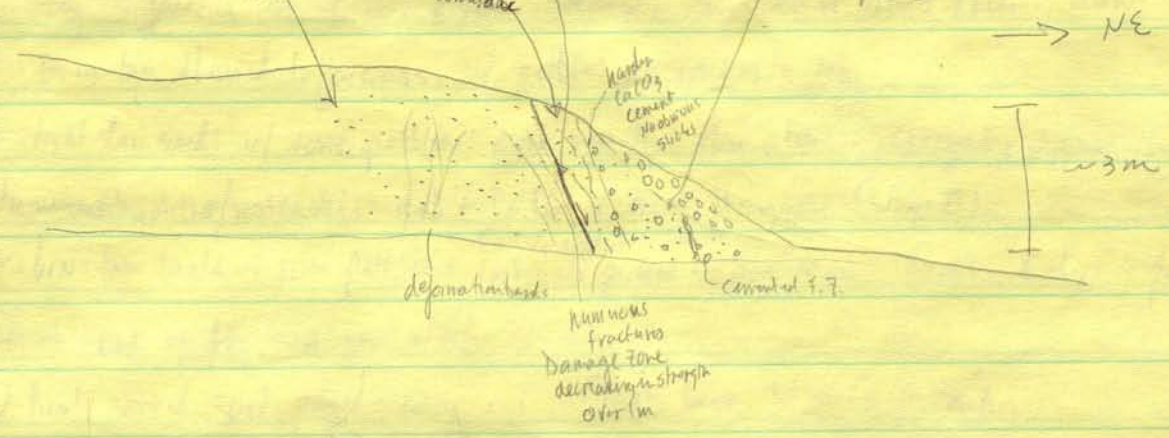 → NE
harder
CaCO3
cement
No obvious
slicks
~3m
deformation bands
cemented F.Z.
numerous
fractures
Damage Zone
decreasing in strength
over 1m